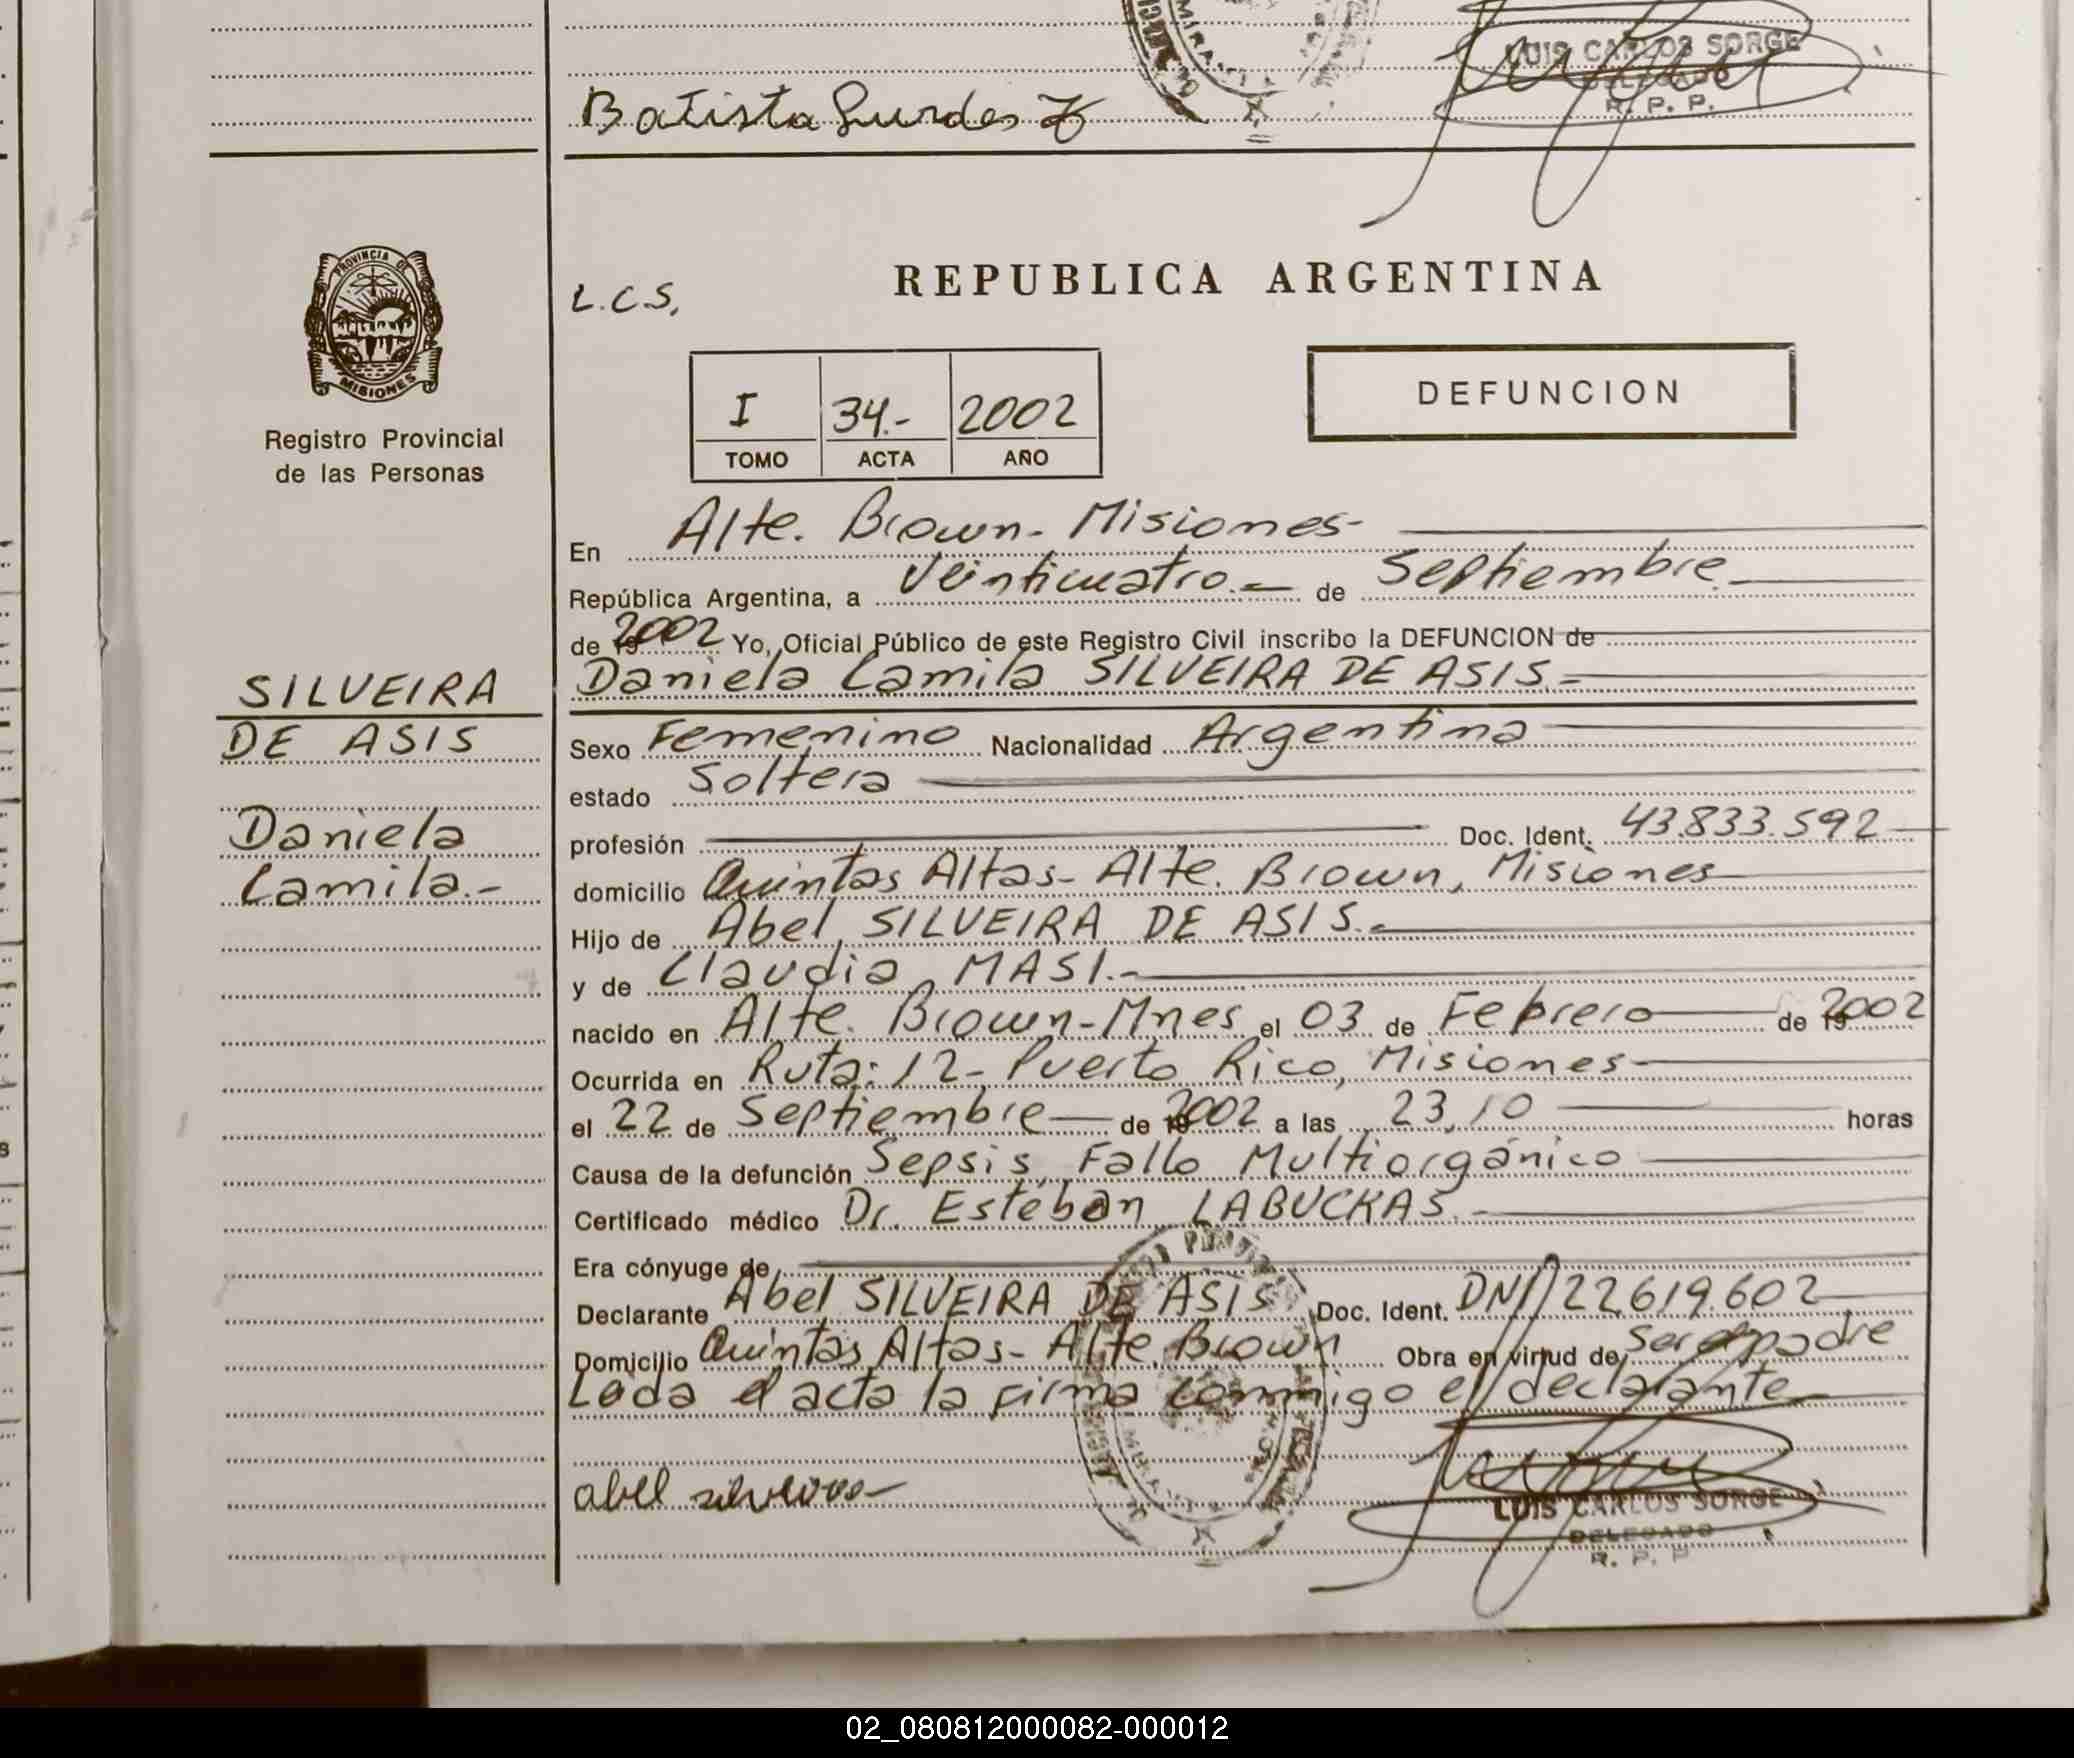 LUIS CARLOS SORGE
DELEGADO
R. P. P.
Batista Lurdes
PROVINCIA DE
MISIONES
Registro Provincial
de las Personas
L.C.S.
REPUBLICA ARGENTINA
I 34.- 2002
TOMO ACTA AÑO
DEFUNCION
En Alte. Brown - Misiones -
República Argentina, a Veinticuatro.- de Septiembre.
de 192002 Yo, Oficial Público de este Registro Civil inscribo la DEFUNCION de
Daniela Camila SILVEIRA DE ASIS.-
SILVEIRA
DE ASIS
Daniela
Camila.-
Sexo Femenino Nacionalidad Argentina
estado Soltera
profesión Doc. Ident. 43.833.592
domicilio Quintas Altas - Alte. Brown, Misiones
Hijo de Abel SILVEIRA DE ASIS.-
y de Claudia MASI.-
nacido en Alte. Brown - Mnes el 03 de Febrero de 192002
Ocurrida en Ruta: 12 - Puerto Rico, Misiones -
el 22 de Septiembre de 192002 a las 23,10 horas
Causa de la defunción Sepsis, Fallo Multiorgánico
Certificado médico Dr. Esteban LABUCKAS.-
Era cónyuge de
Declarante Abel SILVEIRA DE ASIS Doc. Ident. DNI 22.619.602
Domicilio Quintas Altas - Alte. Brown Obra en virtud de Ser el padre
Leída el acta la firma conmigo el declarante
abel silveira
LUIS CARLOS SORGE
DELEGADO
R. P. P
02_080812000082-000012